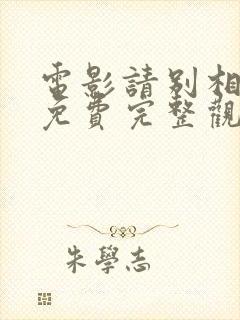 電影請別相
免費完整觀
朱學志